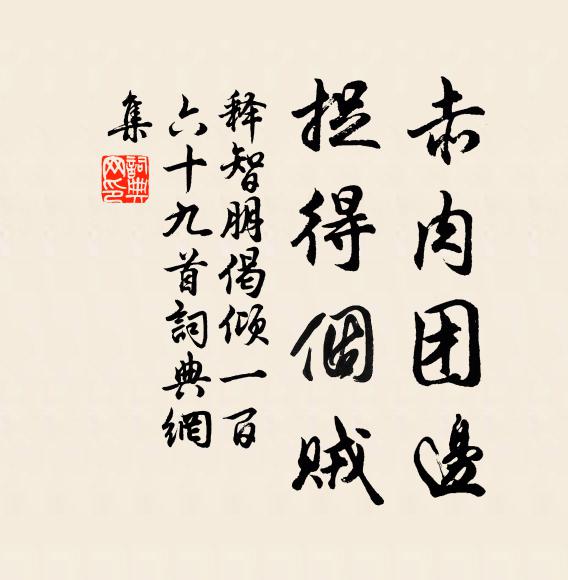 赤肉团邊
捉得個贼
释智朋偈倾一百
六十九首詞典網
集
詞典网印